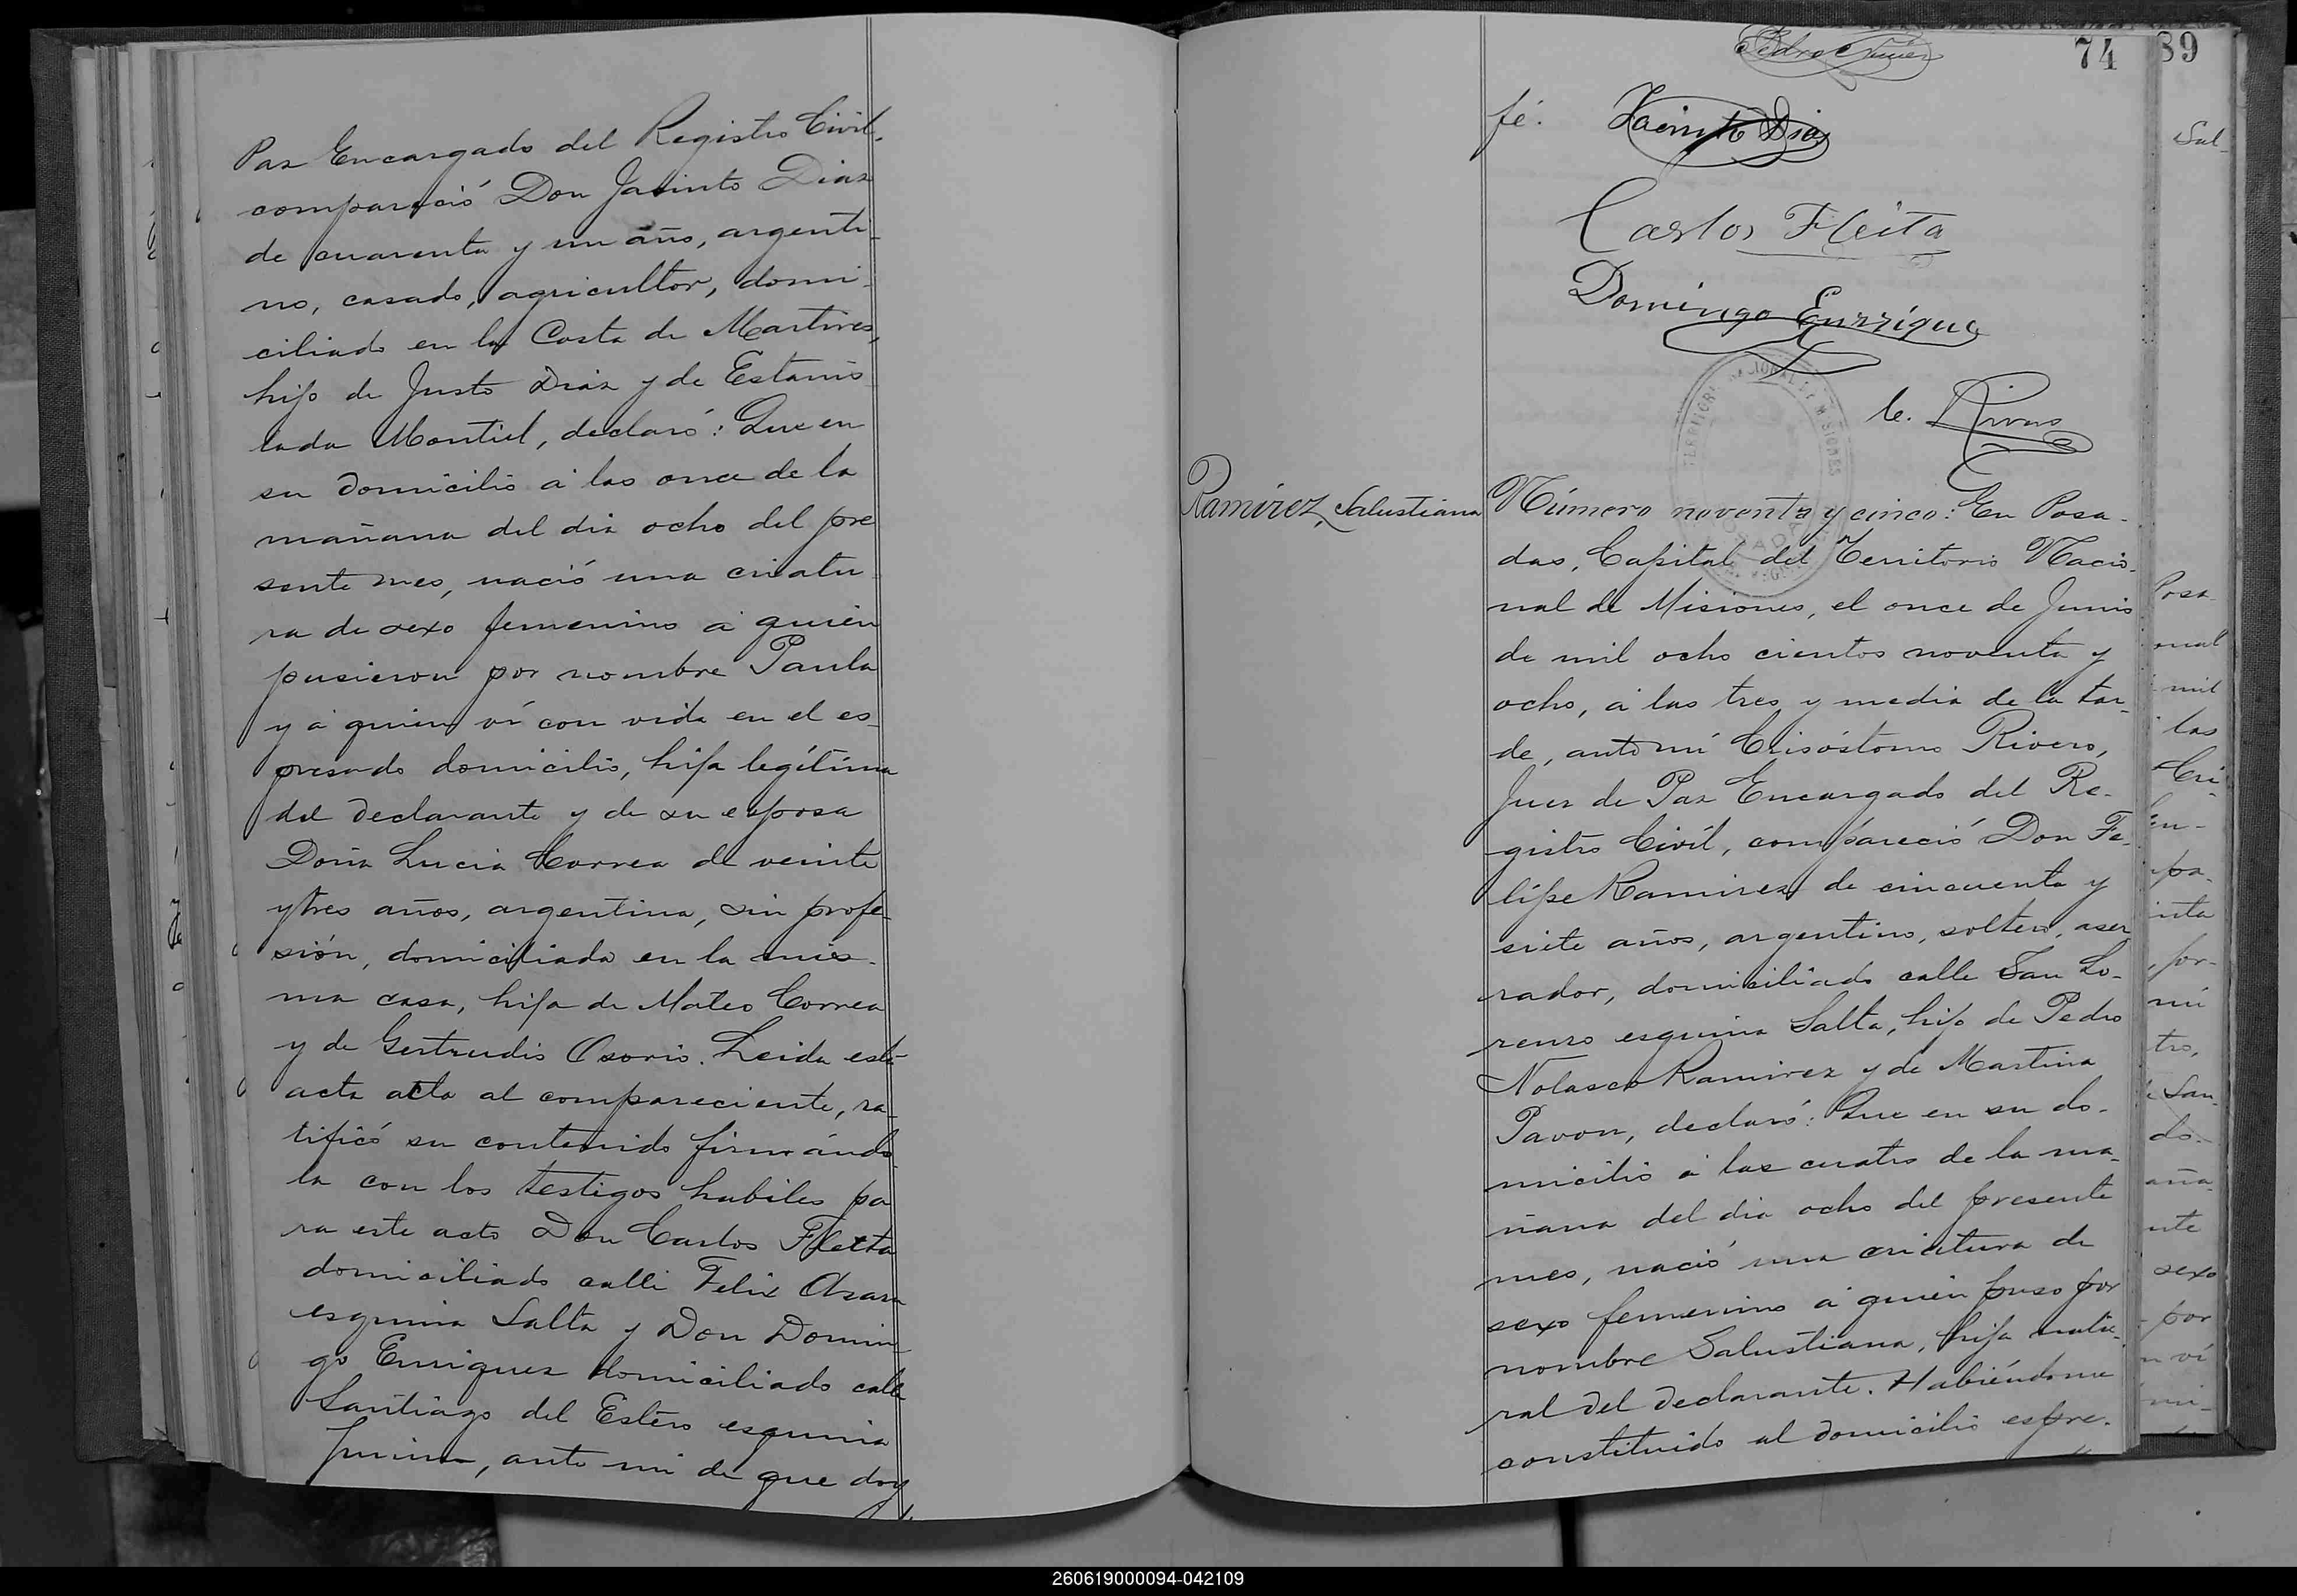 Paz Encargado del Registro Civil,
compareció Don Jacinto Diaz
de cuarenta y un año, argenti-
no, casado, agricultor, domi-
ciliado en la Costa de Martires,
hijo de Justo Diaz y de Estanis
lada Montiel, declaró: Que en
su domicilio á las once de la
mañana del dia ocho del pre
sente mes, nació una criatu
ra de sexo femenino á quien
pusieron por nombre Paula
y á quien ví con vida en el es-
presado domicilio, hija legítima
del declarante y de su esposa
Doña Lucia Correa de veinte
y tres años, argentina, sin profe-
sión, domiciliada en la mis-
ma casa, hija de Mateo Correa
y de Gertrudis Osorio. Leida esta
acta al compareciente, ra-
tificó su contenido firmándo
la con los testigos habiles pa
ra este acto Don Carlos Fleita
domiciliado calli Felix Azara
esquina Salta y Don Domin-
go Enriquez domiciliado calle
Santiago del Estero esquina
Junin, ante mi de que doy
74
89
fé. Jacinto Dias
Carlos Fleita
Domingo Enrrique
C. Rivero
TERRITORIO NACIONAL DE MISIONES
Ramírez, Salustiana
Número noventa y cinco: En Posa-
das, Capital del Territorio Nacio-
nal de Misiones, el once de Junio
de mil ocho cientos noventa y
ocho, á las tres y media de la tar-
de, ante mí Crisóstomo Rivero,
Juez de Paz Encargado del Re-
gistro Civíl, compareció Don Fe-
lipe Ramirez de cincuenta y
siete años, argentino, soltero, aser
rador, domiciliado calle San Lo-
renzo esquina Salta, hijo de Pedro
Nolasco Ramirez y de Martina
Pavon, declaró: Que en su do-
micilio á las cuatro de la ma-
ñana del dia ocho del presente
mes, nació una criatura de
sexo femenino á quien puso por
nombre Salustiana, hija natu-
ral del declarante. Habiéndome
constituido al domicilio espre-
Sal-
Posa-
onal
mil
las
Cri-
En-
pa-
inta
por-
mi
tro,
San-
do-
aña-
nte
sexo
por
n ví
mi-